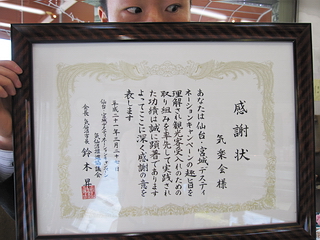 感謝状
気楽会様
あなたは仙台・宮城デスティ
ネーションキャンペーンの趣旨を
理解され観光客受入れのための
取り組みを率先して実践され
た功績は誠に顕著であります
よってここに深く感謝の意を
表します
平成二十一年二月二十七日
仙台・宮城デスティネーションキャンペーン
会長 気仙沼市長 鈴木昇